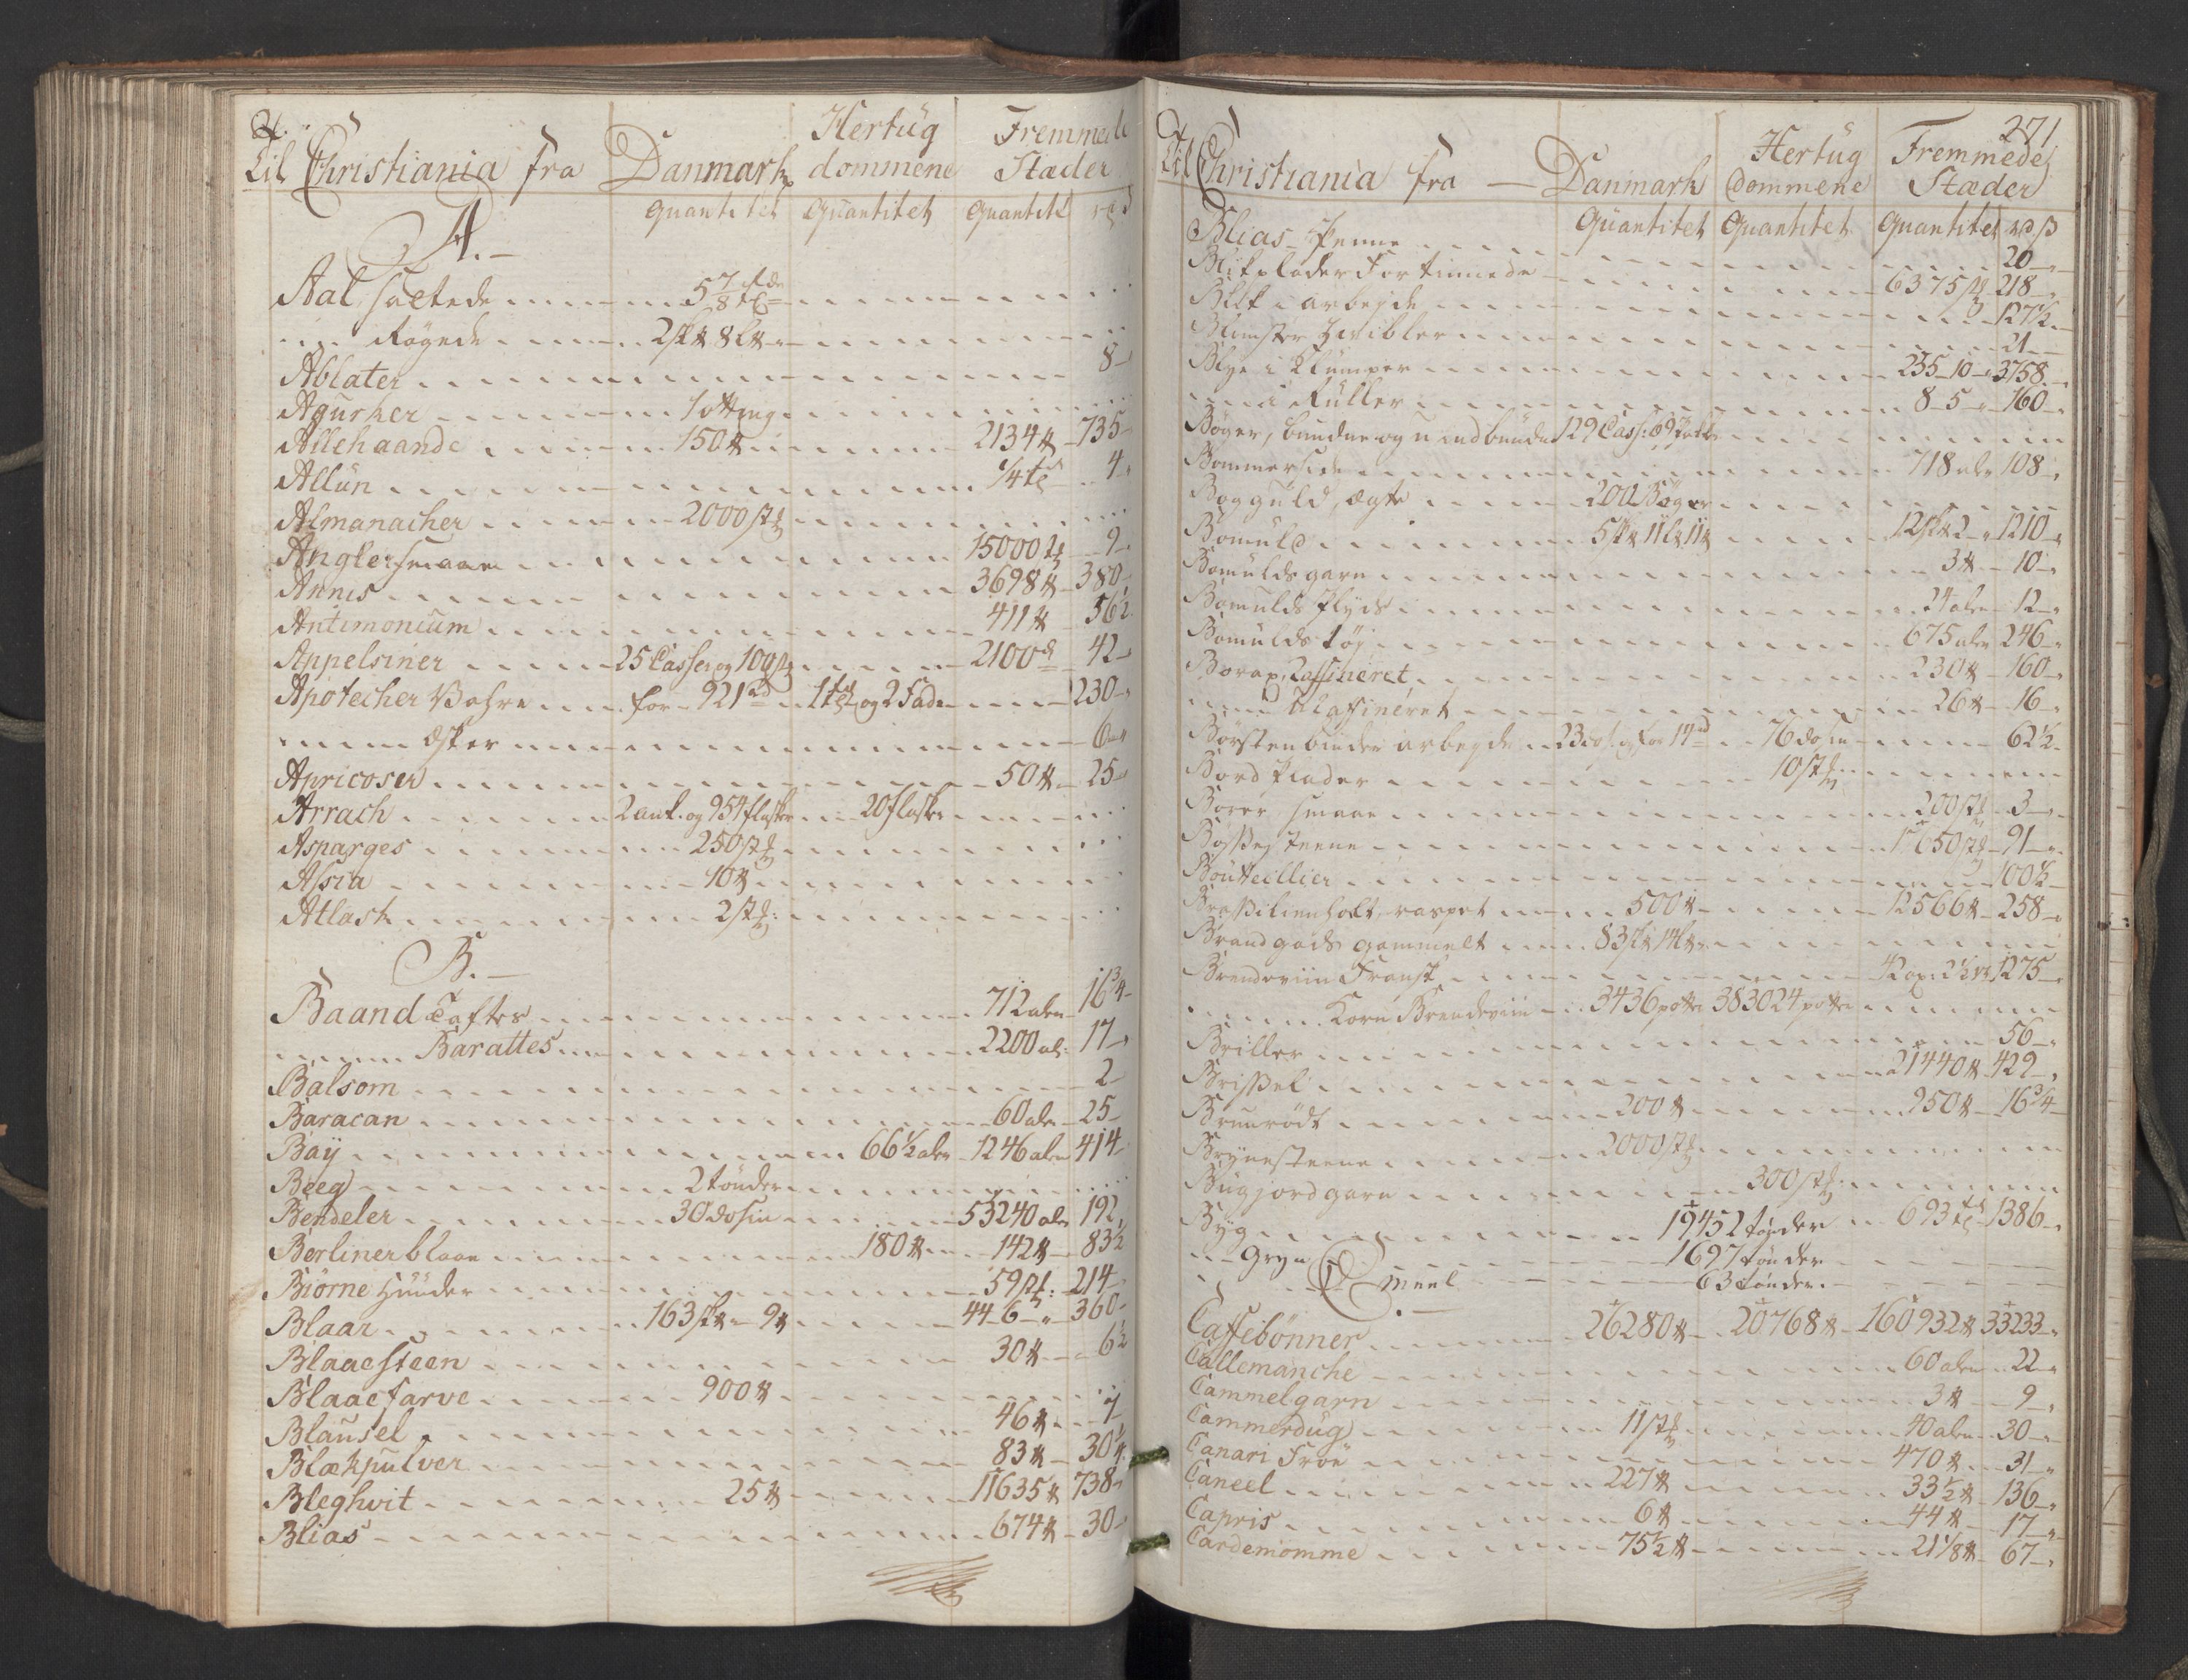 Til Christiania fra Danmark Hertug dommene Fremmede Stæder
Quantitet Quantitet Quantitet
A.
Aal saltede 5 7/8
Røgede 2 8
Ablater 8
Agurker 1 otting
Allehaande 150 ℔ 2134 ℔ 735
Allun 1/4 4
Almanacher 2000 st
Angler smaae 15000 st 9
Annis 3698 ℔ 380
Antimonium 411 ℔ 56½
Appelsiner 25 Casser og 100 st 2100 42
Apotecher Vahre for 921 rd og 2 Fade 230
Æsker 6
Apricoser 50 ℔ 25
Arrach 2 ank. og 954 flasker 20 flasker
Asparges 250 st
Assia 10 ℔
Atlask 2 st
B.
Baand Taftes 712 alen 16¾
Barattes 2200 al: 17
Balsom 2
Baracan 60 alen 25
Bay 66½ alen 1246 alen 414
Beeg 2 tönder
Bendeler 30 dosin 53240 alen 192
Berlinerblaae 180 ℔ 142 ℔ 83½
Biörne Huuder 59 st: 214
Blaar 163 9 ℔ 44-6 360
Blaaesteen 30 ℔ 6½
Blaaefarve 900 ℔
Blausel 46 ℔ 7
Blækpulver 83 ℔ 30¼
Bleghvit 25 ℔ 11635 ℔ 738
Blias 674 ℔ 30
271
Til Christiania fra Danmark Hertug dommene Fremmede Stæder
Quantitet Quantitet Quantitet
Blias Penne 20
Blikplader Fortinnede 6375 st 218
Blik i arbeyde 127½
Blomster Zwibler 21
Blye i Klumper 235-10 3758
i Ruller 8-5 160
Bøger, bundne og u indbundne 129 Cass: 69
Bommerside 718 alen 108
Bogguld, ægte 200 Bøger
Bomuld 5 11 11 ℔ 12 2 1210
Bomuldsgarn 3 ℔ 10
Bomulds Plyds 24 alen 12
Bomulds töy 675 alen 246
Borax, Raffineret 230 ℔ 160
Uraffineret 26 ℔ 16
Børstenbinder arbeyde 23 dos: og for 14 rd 76 dosin 62½
Bord Plader 10 st
Borer smaae 200 st 3
Bosseysteene 650 st 91
Bouteillier 100½
Brassilienholt, raspet 500 ℔ 12566 ℔ 258
Brandgods gammelt 83 14
Brendeviin Fransk 42 ox: 2½ 1275
Korn Brendeviin 3436 potter 383024 potter
Briller 56
Brissel 21440 ℔ 429
Bruunrödt 200 ℔ 950 ℔ 16¾
Brynesteene 2000 st
Bugjordgarn 300 st
Byg 19452 tønder 693 1386
Gryn 1697 tønder
Meel 63 tønder
C.
Caffebönner 26280 ℔ 20768 ℔ 160932 ℔ 33233
Callemanche 60 alen 22
Cammelgarn 3 ℔ 9
Cammerdug 11 st 40 alen 30
Canari Fröe 470 ℔ 31
Caneel 227 ℔ 33½ ℔ 136
Capris 6 ℔ 44 ℔ 17
Cardemomme 75½ ℔ 21⅛ ℔ 67